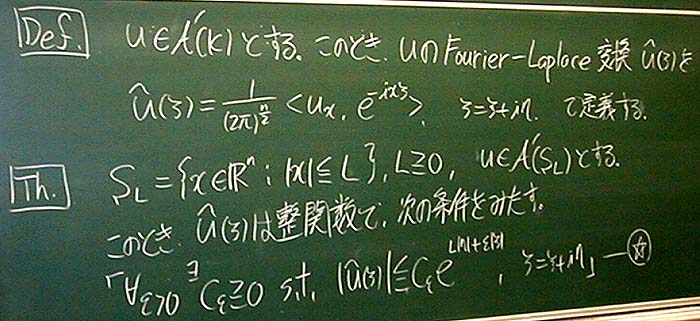 Def. u∈A'(K)とする。このとき、uのFourier-Laplace変換 û(ζ)を
û(ζ) = 1/(2π)^{n/2} <u_x, e^{-ixζ}>, ζ=ξ+iη, で定義する。
Th. S_L={x∈ℝ^n; |x|≦L}, L≧0, u∈A'(S_L)とする。
このとき û(ζ)は整関数で、次の条件をみたす。
「∀ε>0 ∃C_ε≧0 s.t. |û(ζ)|≦C_ε e^{L|η|+ε|ζ|}, ζ=ξ+iη」—☆